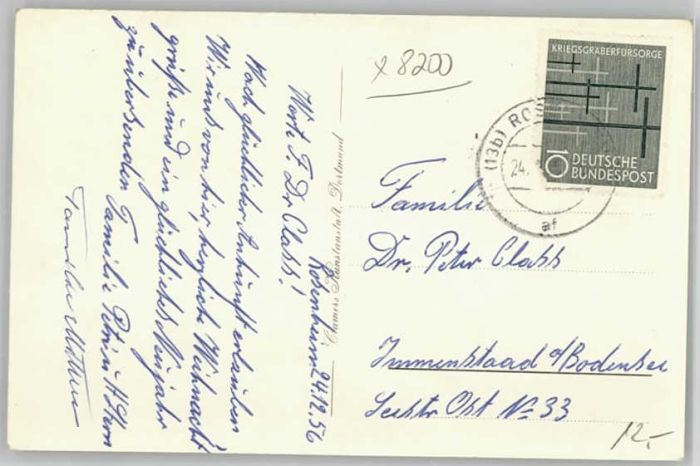 x 8200
KRIEGSGRÄBERFÜRSORGE
10 DEUTSCHE
BUNDESPOST
(13b) ROS
24.
af
Rosenheim 24.12.56
Werte F. Dr. Class!
Nach glücklicher Ankunft erlauben
Wir uns von hier, herzliche Weihnacht
grüße und ein glückliches Neujahr
zu übersenden Familie
Kunstanstalt, Dortmund
Familie
Dr. Peter Class
Immenstaad a/Bodensee
Ort No 33
12,-